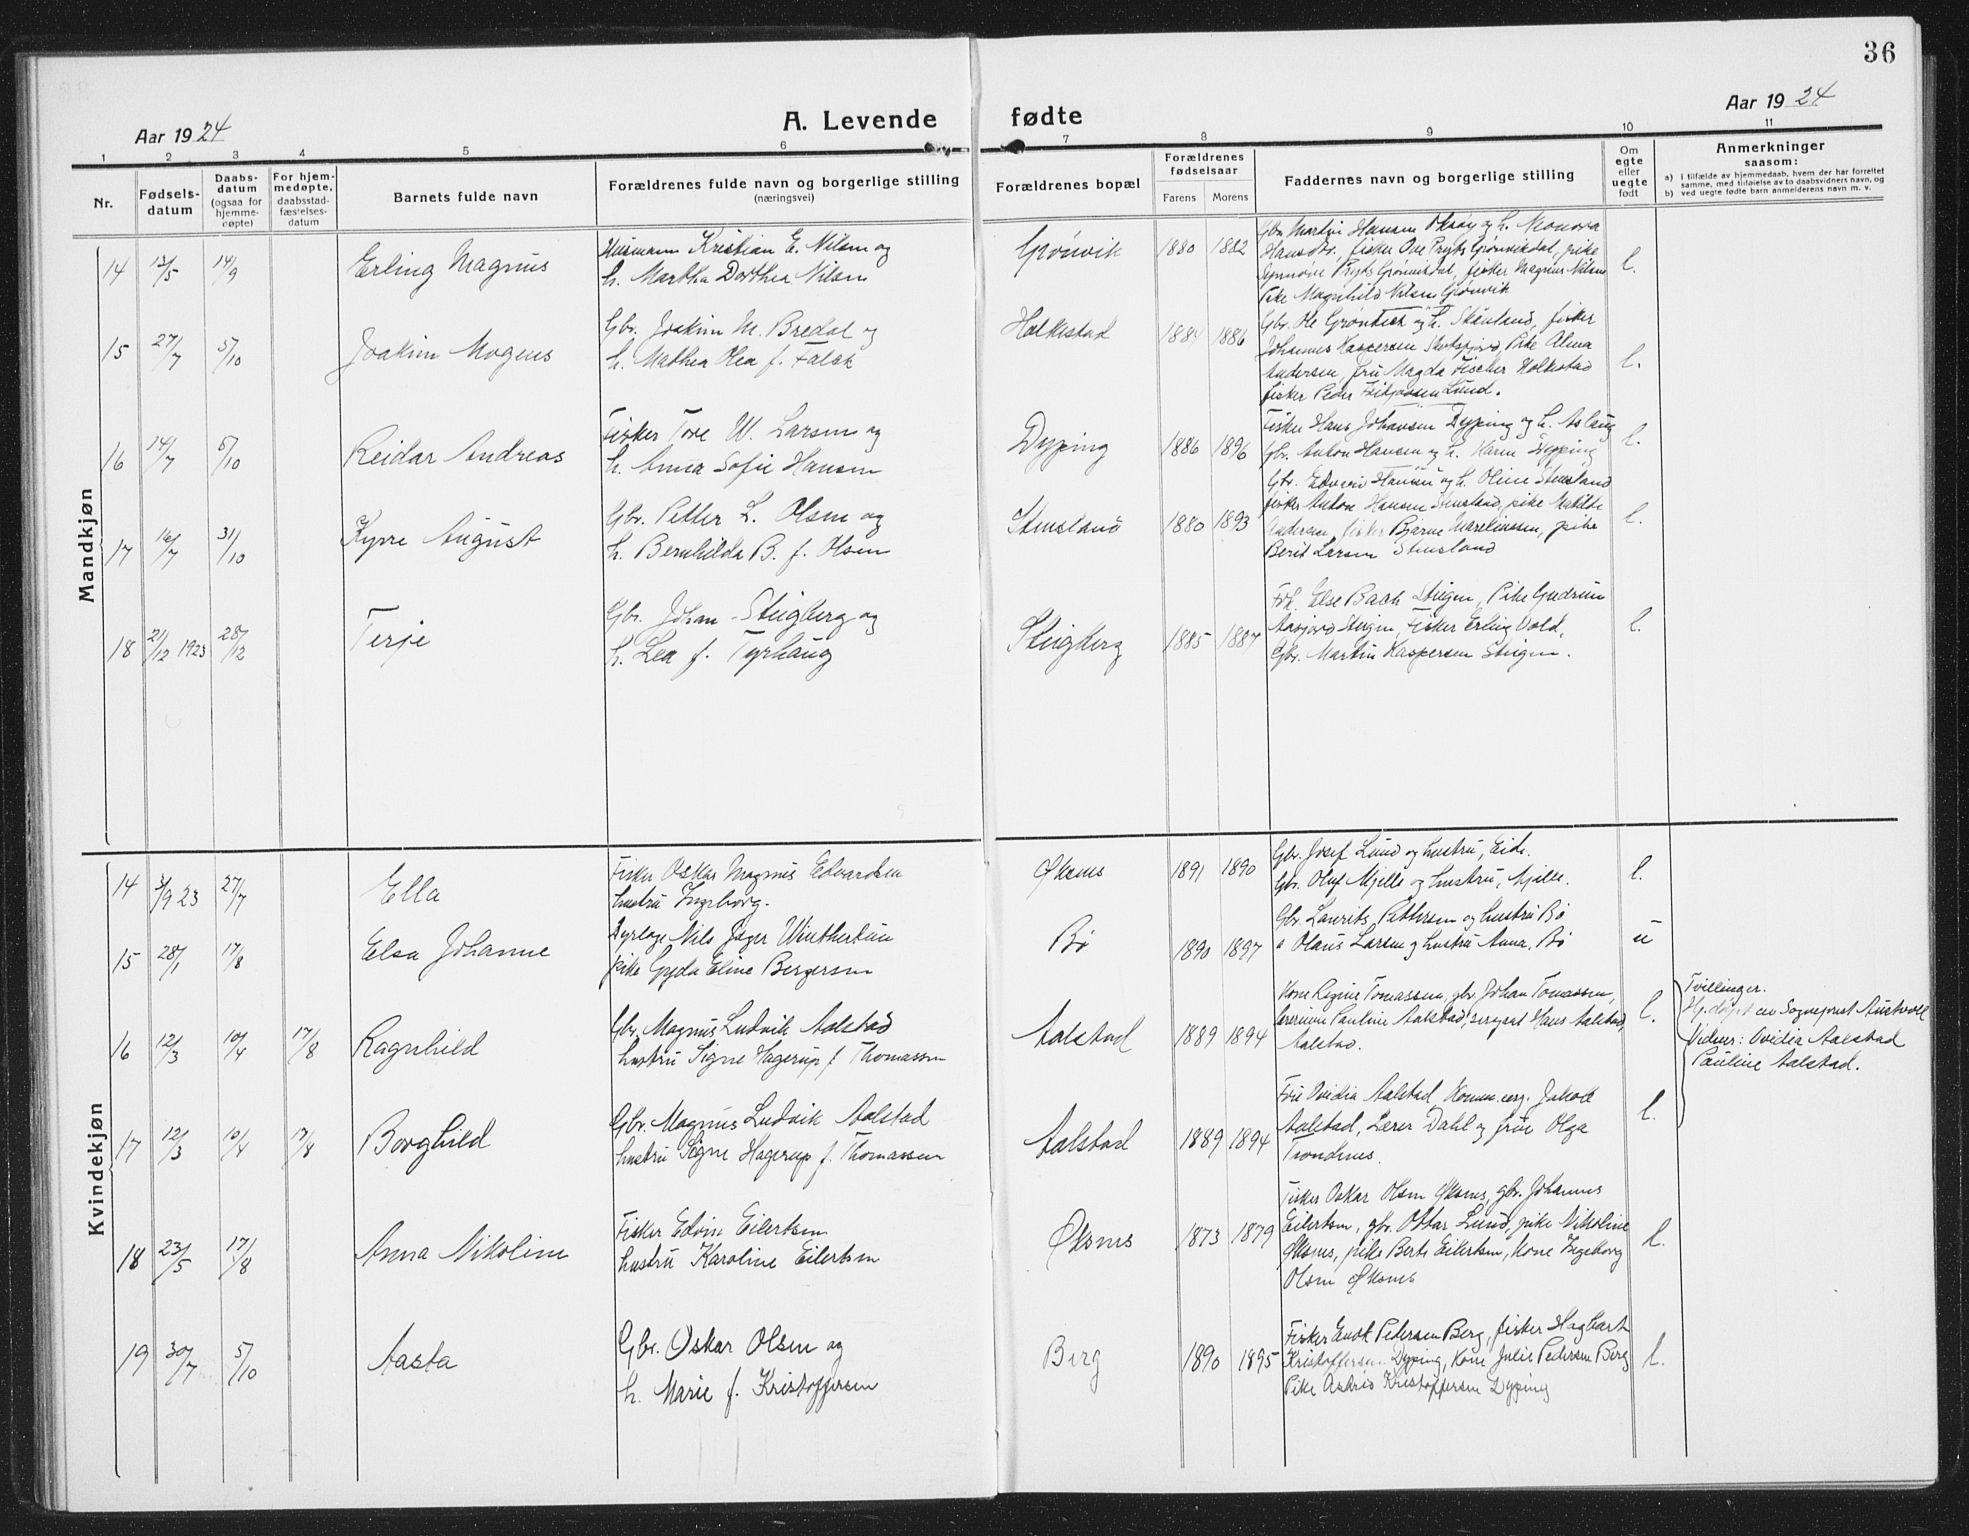 36
Aar 1924
A. Levende fødte
Aar 1924
1 2 3 4 5 6 7 8 9 10 11
Nr.
Fødsels-
datum
Daabs-
datum
(ogsaa for
hjemme-
døpte)
For hjem-
medøpte,
daabsstad-
fæstelses-
datum
Barnets fulde navn
Forældrenes fulde navn og borgerlige stilling
(næringsvei)
Forældrenes bopæl
Forældrenes
fødselsaar
Farens Morens
Faddernes navn og borgerlige stilling
Om
egte
eller
uegte
født
Anmerkninger
saasom:
a) i tilfælde av hjemmedaab, hvem der har forrettet
samme, med tilføielse av to daabsvidners navn, og
b) ved uegte fødte barn anmelderens navn m. v.
Mandkjøn
14 13/5 14/9 Erling Magnus
Husmann Kristian E. Nilsen og
h. Martha Dorthea Nilsen
Grønvik 1880 1882
Gbr. Martin Hansen Oksøy og h.
Hansdtr., fisker Ove Pryts Grønvikdal, pike
Synnøve Pryts Grønvikdal, fisker Magnus Nilsen
Pike Magnhild Nilsen Grønvik
l.
15 27/7 5/10 Joakim Mogens
Gbr. Joakim M. Bredal og
h. Mathea Olea f. Falch
Holkestad 1884 1886
Gbr. Ole og h. Skånland, fisker
Johannes Kaspersen Skotsfjord, Pike Alma
Andersen, fru Magda Fischer Holkestad
fisker Peder Lund.
l.
16 14/7 5/10 Reidar Andreas
Fisker Tore W. Larsen og
h. Anna Sofie Hansen
Dyping 1886 1896
Fisker Hans Johansen Dyping og h. Aslaug
Gbr. Anton Hansen og h. Karen Dyping
l.
17 16/7 31/10 Kyrre August
Gbr. Petter L. Olsen og
h. Bernhilda B. f. Olsen
Stensland 1880 1893
Gbr. Edvin Hansen og h. Oline Stensland
fisker Anton Hansen Stensland, pike Matilde
Andersen, fisker Bjarne Martinussen, pike
Berit Larsen Stensland
l.
18 21/12 1923 28/12 Terje
Gbr. Johan Steigberg og
h. Lea f. Tyrhaug
Steigberg 1885 1887
Frk. Else Bach Steigen, Pike Gudrun
Aasjord Steigen, Fisker Erling Vold,
Gbr. Martin Kaspersen Steigen.
l.
Kvindekjøn
14 3/9 23 27/7 Ella
Fisker Oskar Magnus Edvardsen
hustru Ingeborg.
Øksnes 1891 1890
Gbr. Josef Lund og hustru, Eide.
Gbr. Oluf Mjelle og hustru, Mjelle.
l.
15 28/1 17/8 Elsa Johanne
Dyrlæge Nils Jæger Winther
pike Gyda Eline Bergersen
Bø 1890 1897
Gbr. Laurits Pettersen og hustru Bø
" Olaus Larsen og hustru Anna, Bø
u
16 12/3 10/4 17/8 Ragnhild
Gbr. Magnus Ludvik Aalstad
hustru Signe Hagerup f. Thomassen
Aalstad 1889 1894
Kone Regine Tomassen, gbr. Johan Tomassen,
lærerinne Pauline Aalstad, sergeant Hans Aalstad,
Aalstad.
l.
Tvillinger.
Hj.døpt av Sogneprest
Vidner: Ovidia Aalstad
Pauline Aalstad.
17 12/3 10/4 17/8 Borghild
Gbr. Magnus Ludvik Aalstad
hustru Signe Hagerup f. Thomassen
Aalstad 1889 1894
Frue Ovidia Aalstad, Jakob
Aalstad, Lærer Dahl og frue Olga
Trondenes.
l.
18 23/5 17/8 Anna Nikoline
Fisker Edvin Eilertsen
hustru Karoline Eilertsen
Øksnes 1873 1879
Fisker Oskar Olsen Øksnes, gbr. Johannes
Eilertsen, gbr. Ottar Lund, pike Nikoline
Øksnes, pike Berts Eilertsen, Kone Ingeborg
Olsen Øksnes
l.
19 30/7 5/10 Aasta
Gbr. Oskar Olsen og
h. Marie f. Kristoffersen
Berg 1890 1895
Fisker Enok Pedersen Berg, fisker Hagbart
Kristoffersen Dyping, Kone Julie Pedersen Berg
Pike Astrid Kristoffersen Dyping
l.